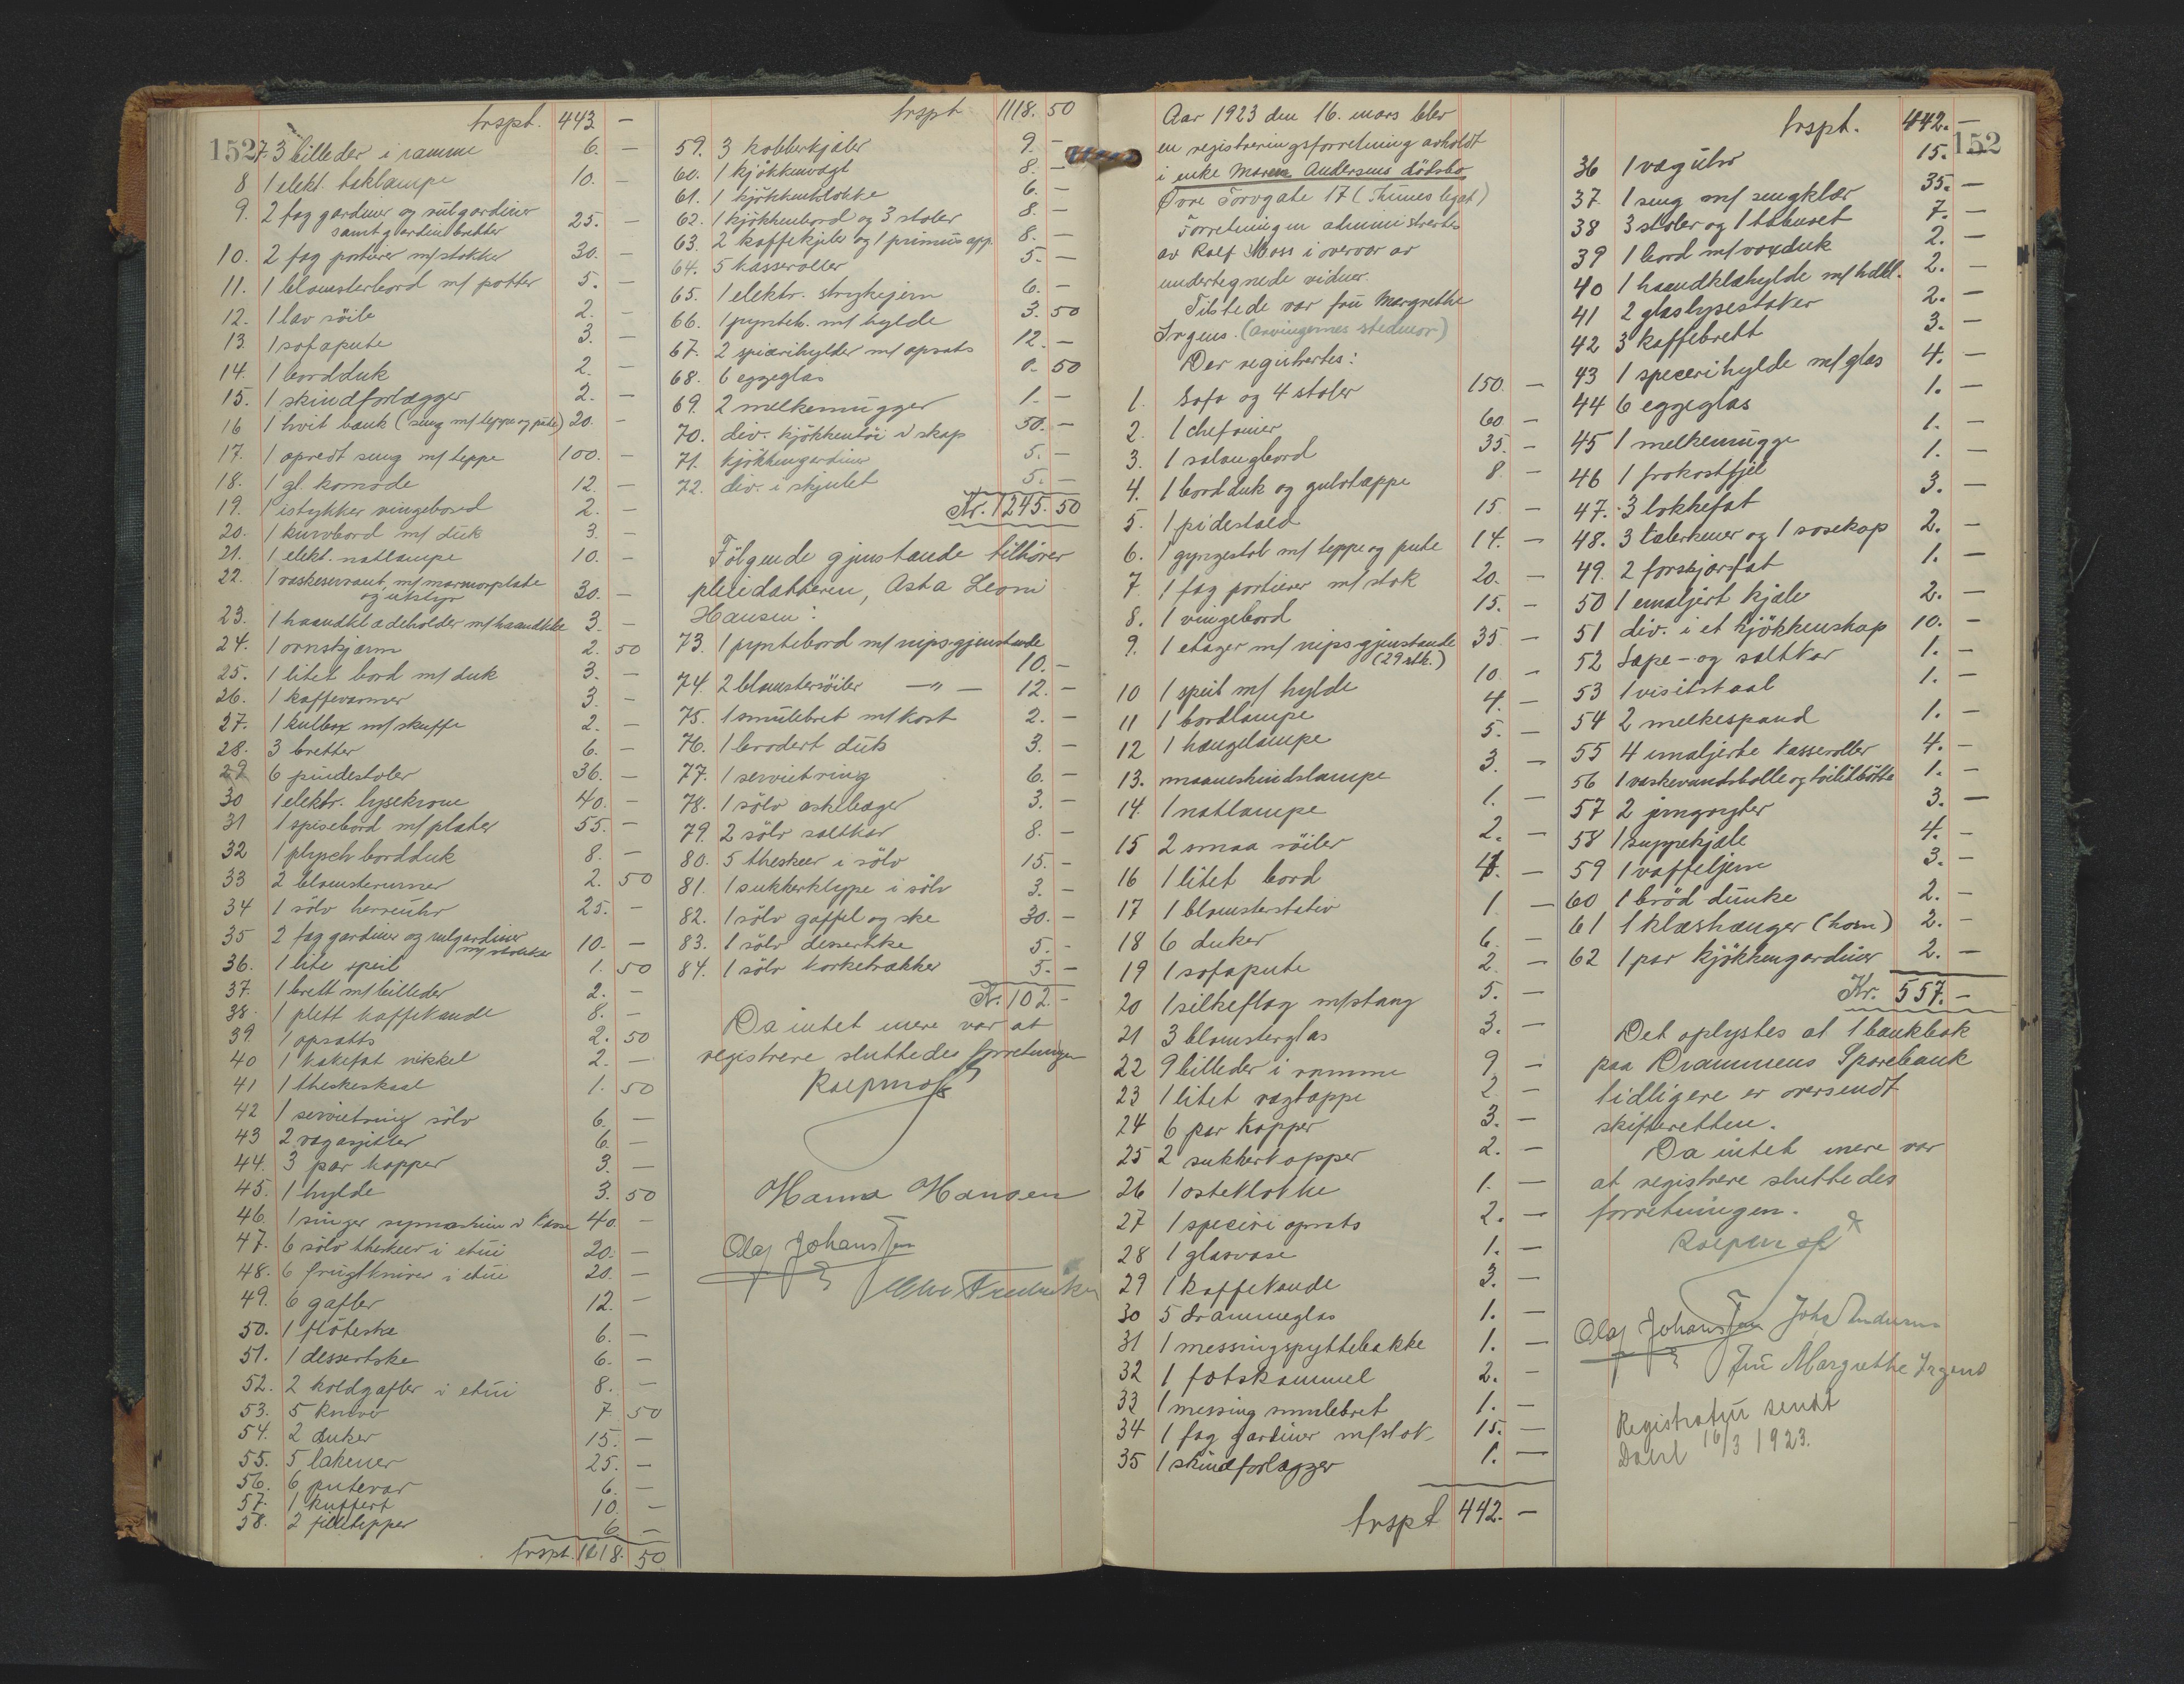 152
trspt. 443 —
7. 3 billeder i ramme 6. —
8 1 elekt. taklampe 10. —
9. 2 fag gardiner og rulgardiner
samt gardinbretter 25. —
10. 2 fag portierer m/stokker 30. —
11. 1 blomsterbord m/ potter 5. —
12. 1 lav söile 2. —
13. 1 sofapute 3. —
14. 1 bordduk 2. —
15. 1 skindforlægger 2. —
16 1 hvit bænk (seng m/ teppe og pute) 20. —
17. 1 opredt seng m/ teppe 100. —
18. 1 gl. komode 12. —
19. 1 istykker vingebord 2. —
20. 1 kurvbord m/ duk 3. —
21. 1 elekt. natlampe 10. —
22. 1 vaskeservant m/ marmorplate
og utstyr 30. —
23. 1 haandklædeholder m/ haandklæ 3. —
24. 1 ovnskjerm 2. 50
25. 1 litet bord m/ duk 3. —
26. 1 kaffevarmer 3. —
27. 1 kulbox m/ skuffe 2. —
28. 3 bretter 6. —
29 6 pindestoler 36. —
30 1 elektr. lysekrone 40. —
31 1 spisebord m/ plater 55. —
32 1 plysch bordduk 8. —
33 2 blomsterurner 2. 50
34 1 sölv herreuhr 25. —
35 2 fag gardiner og rulgardiner
m/ stokker 10. —
36. 1 lite speil 1. 50
37. 1 brett m/ billeder 2. —
38. 1 plett kaffekande 8. —
39. 1 opsatts 2. 50
40 1 kakefat nikkel 2. —
41 1 theskeskaal 1. 50
42 1 serviettring sölv 6. —
43 2 vægasjetter 6. —
44. 3 par kopper 3. —
45. 1 hylde 3. 50
46. 1 singer symaskine i kasse 40. —
47. 6 sölv theskeer i etui 20. —
48. 6 frugtkniver i etui 20. —
49. 6 gafler 12. —
50. 1 flöteske 6. —
51. 1 dessertske 6. —
52. 2 koldgafler i etui 8. —
53. 5 kniver 7. 50
54. 2 duker 15. —
55. 5 lakener 25. —
56. 6 putevar 6. —
57. 1 kuffert 10. —
58. 2 filletepper 6. —
trspt. 1118. 50
trspt. 1118. 50
59. 3 kobberkjeler 9. —
60. 1 kjökkenvægt 8. —
61. 1 kjökkenklokke 6. —
62. 1 kjökkenbord og 3 stoler 8. —
63. 2 kaffekjeler og 1 primus app. 8. —
64. 5 kasseroller 5. —
65. 1 elektr. strykejern 6. —
66. 1 pynteh. m/ hylde 3. 50
67. 2 spicerihylder m/ opsats 12. —
68. 6 eggeglas 0. 50
69. 2 melkemugger 1. —
70. div. kjökkentöi i skap 50. —
71. kjökkengardiner 5. —
72. div. i skjulet 5. —
Kr. 1245. 50
Fölgende gjenstande tilhörer
pleiedatteren, Asta Leoni
Hansen:
73. 1 pyntebord m/ nipsgjenstande
10. —
74. 2 blomstersöiler — " — 12. —
75. 1 smulebret m/ kost 2. —
76. 1 brodert duk 3. —
77. 1 serviettring 6. —
78. 1 sölv askebæger 3. —
79. 2 sölv saltkar 8. —
80. 5 theskeer i sölv 15. —
81. 1 sukkerklype i sölv 3. —
82. 1 sölv gaffel og ske 30. —
83. 1 sölv dessertske 5. —
84. 1 sölv korketrækker 5. —
Kr. 102. —
Da intet mere var at
registrere sluttedes forretningen
Rolf Moss
Hanna Hansen
Olaf Johansen
152
Aar 1923 den 16. mars blev
en registreringsforretning avholdt
i enke Maren Andersens dödsbo
Övre Torvgate 17 (Thunes legat)
Forretningen administrertes
av Rolf Moss i overvær av
undertegnede vidner.
Tilstede var fru Margrethe
Irgens. (arvingernes stedmor)
Der registrertes:
1. Sofa og 4 stoler 150. —
2. 1 chefonier 60. —
3. 1 salongbord 35. —
4. 1 bordduk og gulvtæppe 8. —
5. 1 pidestald 15. —
6. 1 gyngestol m/ teppe og pute 14. —
7 1 fag portierer m/ stok 20. —
8. 1 vingebord 15. —
9. 1 etager m/ nipsgjenstande
(29 stk.) 35 —
10 1 speil m/ hylde 10. —
11 1 bordlampe 4. —
12 1 hængelampe 5. —
13. maaneskindslampe 3. —
14. 1 natlampe 1. —
15 2 smaa söiler 2. —
16 1 litet bord 4. —
17 1 blomsterstativ 1 —
18 6 duker 6. —
19 1 sofapute 2. —
20 1 silkeflag m/stang 5. —
21 3 blomsterglas 3. —
22 9 billeder i ramme 9 —
23 1 litet vægtæppe 2 —
24 6 par kopper 3. —
25 2 sukkerkopper 2. —
26 1 osteklokke 1. —
27 1 speceri opsats 2. —
28 1 glasvase 1. —
29 1 kaffekande 3. —
30 5 drammeglas 1. —
31 1 messingspyttebakke 1. —
32 1 fotskammel 2. —
33 1 messing smulebret 1. —
34 1 fag gardiner m/stok 15. —
35 1 skindforlægger 1. —
trspt 442. —
trspt. 442. —
36 1 væguhr 15. —
37. 1 seng m/ sengklær 35. —
38 3 stoler og 1 taburet 7. —
39 1 bord m/ voxduk 2. —
40 1 haandklæhylde m/ hdkl. 2. —
41 2 glaslysestaker 2. —
42 3 kaffebrett 3. —
43 1 specerihylde m/ glas 4. —
44 6 eggeglas 1. —
45 1 melkemugge 1. —
46 1 frokostfjel 1. —
47. 3 lokkefat 3. —
48. 3 talerkener og 1 sosekop 2. —
49. 2 forskjærfat 1. —
50 1 emaljert kjele 2. —
51 div. i et kjökkenskap 10. —
52 Sæpe- og saltkar 1. —
53 1 visitstaal 1. —
54 2 melkespand 1. —
55 4 emaljerte kasseroller 4. —
56 1 vaskevandsbolle og toilétbötte 1. —
57 2 jerngryter 3. —
58 1 suppekjele 4. —
59 1 vaffeljern 3. —
60 1 bröd dunke 2. —
61 1 klæshænger (horn) 2. —
62 1 par kjökkengardiner 2. —
Kr. 557. —
Det oplystes at 1 bankbok
paa Drammens Sparebank
tidligere er oversendt
skifteretten.
Da intet mere var
at registrere sluttedes
forretningen.
Rolf Moss
Olaf Johansen Johs Andersen
Fru Margrethe Irgens
Registratur sendt
Dahl 16/3 1923.